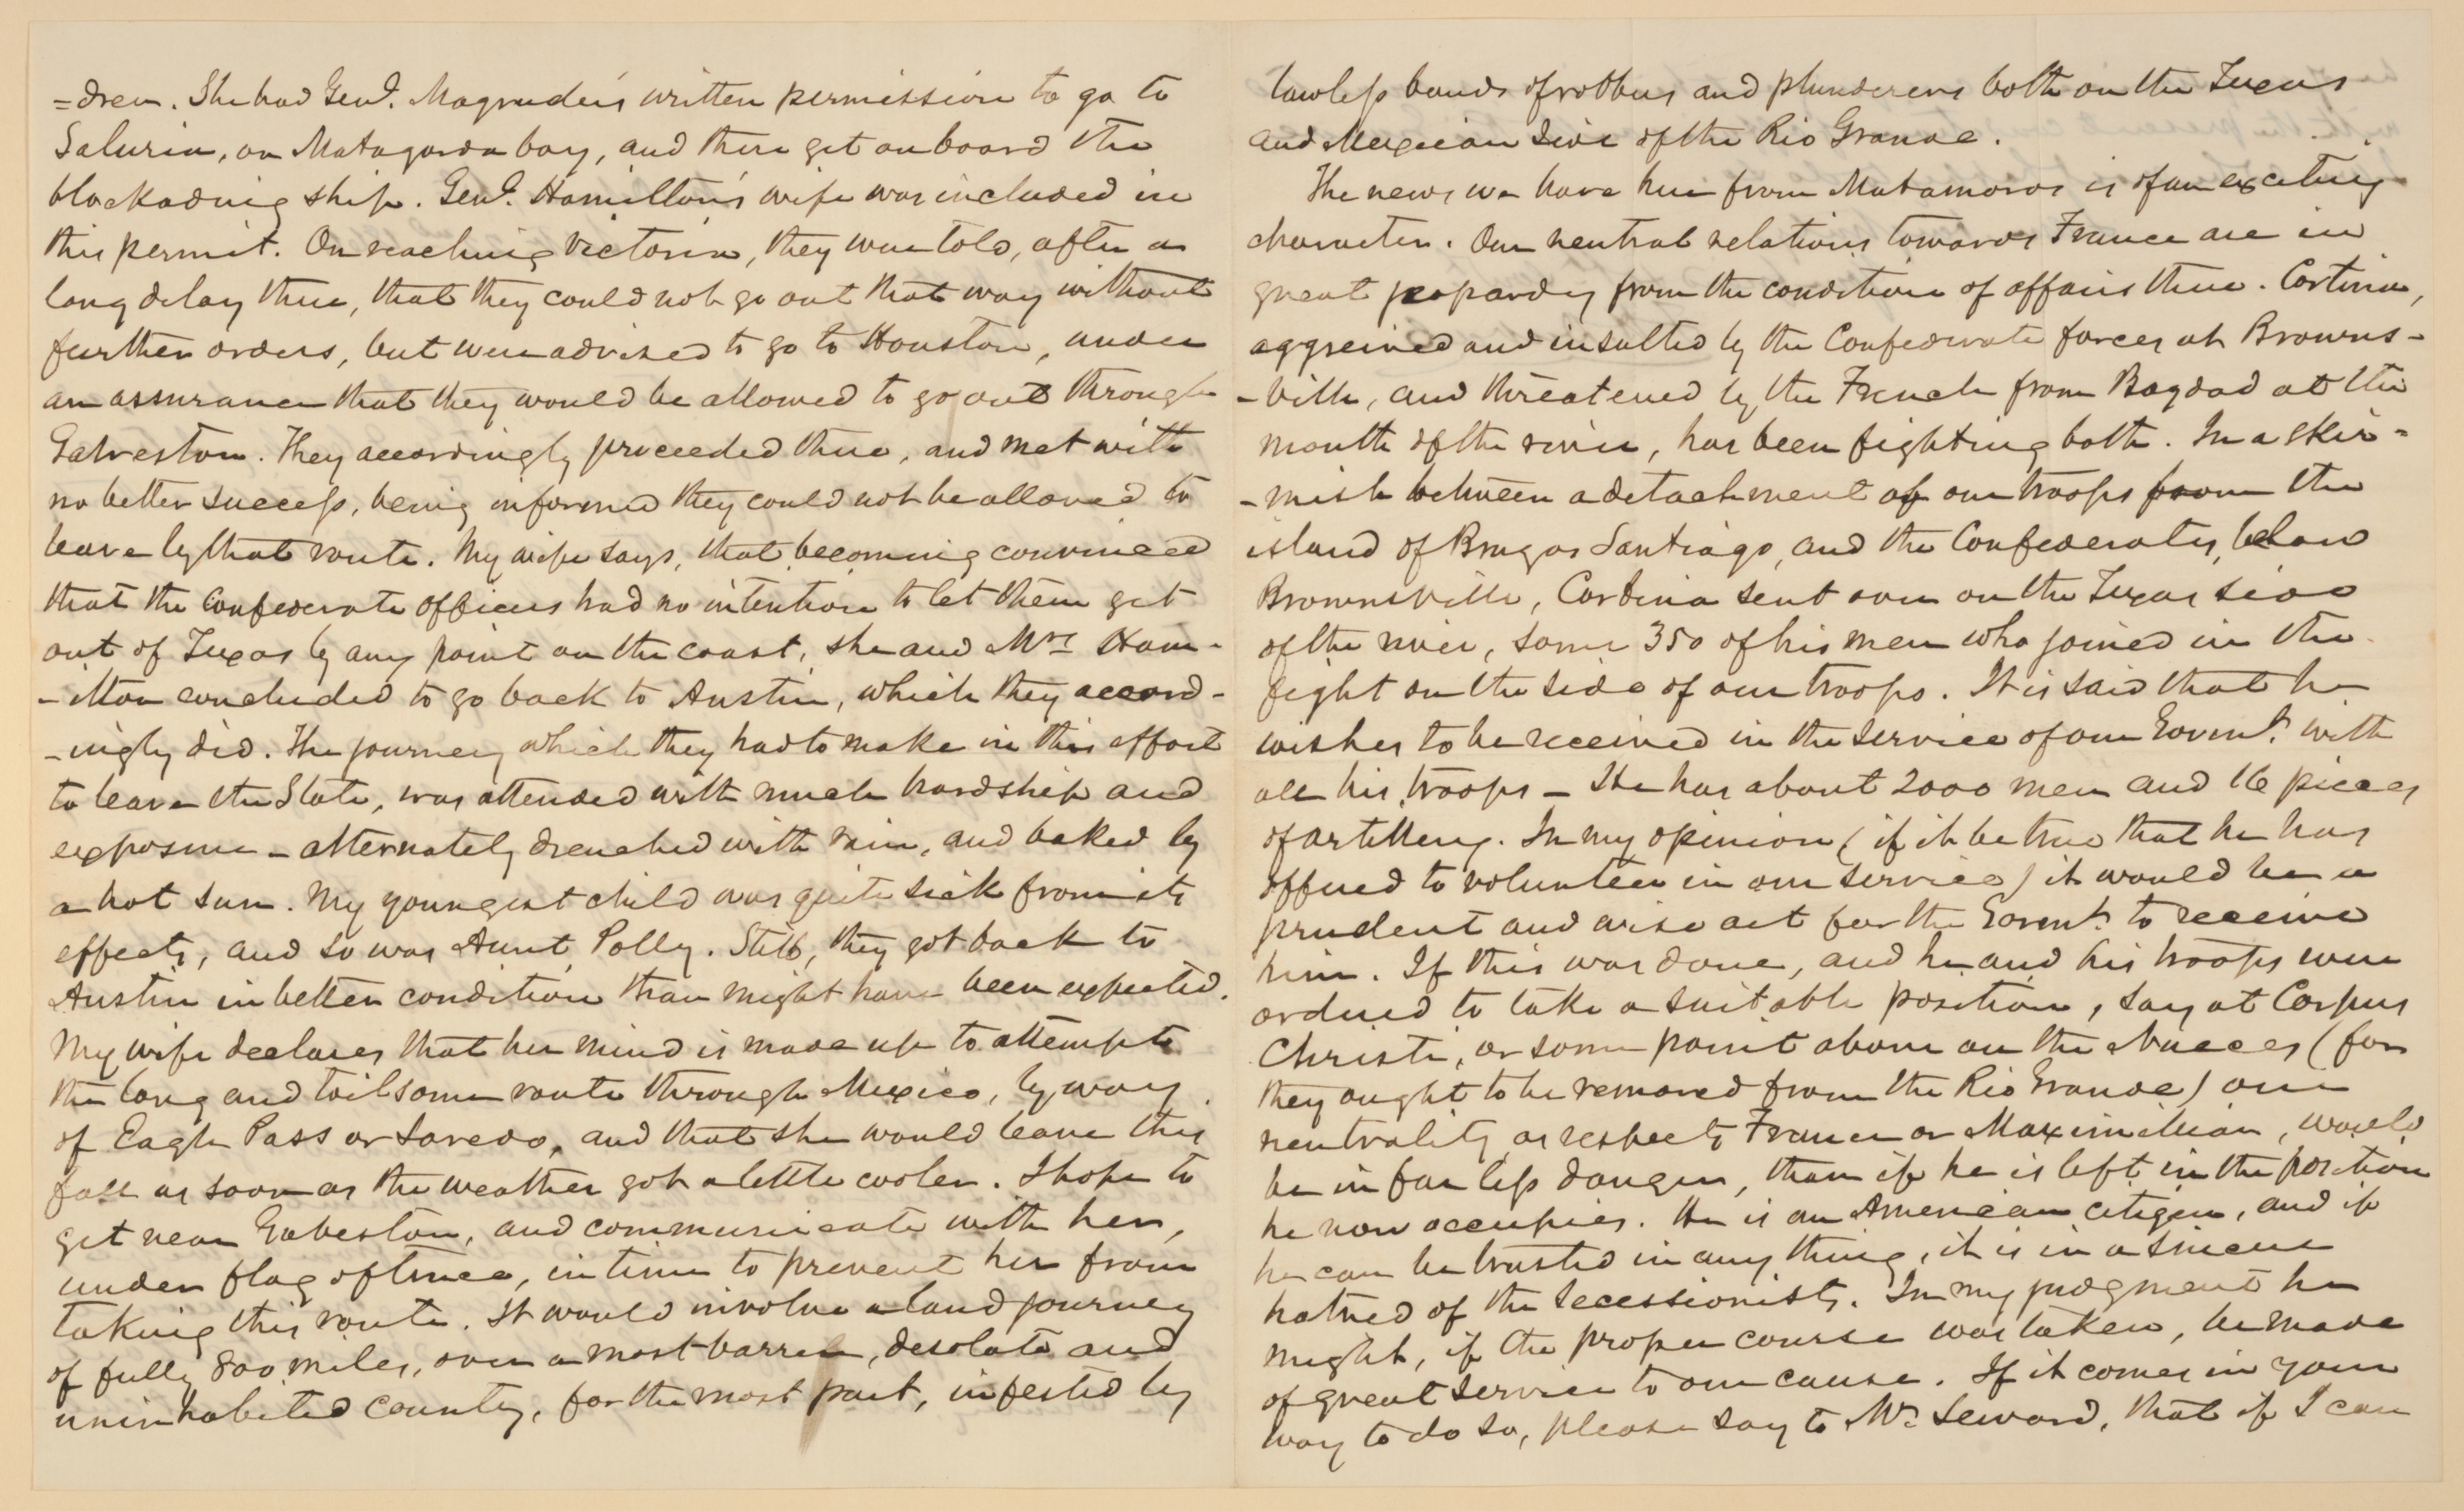 =dren. She had Genl. Magruder's written permission to go to
Saluria, on Matagorda bay, and there get on board the
blockading ship. Genl. Hamilton's wife was included in
this permit. On reaching Victoria, they were told, after a
long delay there, that they could not go out that way without
further orders, but were advised to go to Houston, under
an assurance that they would be allowed to go out through
Galveston. They accordingly proceeded there, and met with
no better success, being informed they could not be allowed to
leave by that route. My wife says, that becoming convinced
that the Confederate officers had no intention to let them get
out of Texas by any point on the coast, she and Mrs Ham-
-ilton concluded to go back to Austin, which they accord-
-ingly did. The journey which they had to make in this effort
to leave the State, was attended with much hardship and
exposure - alternately drenched with rain, and baked by
a hot sun. My youngest child was quite sick from its
effects, and so was Aunt Polly. Still, they got back to
Austin in better condition than might have been expected.
My wife declares that her mind is made up to attempt
the long and toilsome route through Mexico, by way
of Eagle Pass or Laredo, and that she would leave this
fall as soon as the weather got a little cooler. I hope to
get near Galveston, and communicate with her,
under flag of truce, in time to prevent her from
taking this route. It would involve a land journey
of fully 800 miles, over a most barren, desolate and
uninhabited country, for the most part, infested by
lawless bands of robbers and plunderers both on the Texas
and Mexican side of the Rio Grande.
The news we have here from Matamoros is of an exciting
character. Our neutral relations towards France are in
great jeopardy from the condition of affairs there. Cortina,
aggreived and insulted by the Confederate forces at Browns-
-ville, and threatened by the French from Bagdad at the
mouth of the river, has been fighting both. In a skir-
-mish between a detachment of our troops from the
island of Brazos Santiago, and the Confederates, below
Brownsville, Cortina sent over on the Texas side
of the river, some 350 of his men who joined in the
fight on the side of our troops. It is said that he
wishes to be received in the service of our Governt. with
all his troops - He has about 2000 men and 16 pieces
of artillery. In my opinion (if it be true that he has
offered to volunteer in our service) it would be a
prudent and wise act for the Governt. to receive
him. If this was done, and he and his troops were
ordered to take a suitable position, say at Corpus
Christi, or some point above on the Nueces (for
they ought to be removed from the Rio Grande) our
neutrality as respects France or Maximilian, would
be in far less danger, than if he is left in the position
he now occupies. He is an American citizen, and if
he can be trusted in any thing, it is in a sincere
hatred of the Secessionists. In my judgment he
might, if the proper course was taken, be made
of great service to our cause. If it comes in your
way to do so, please say to Mr. Seward, that if I can